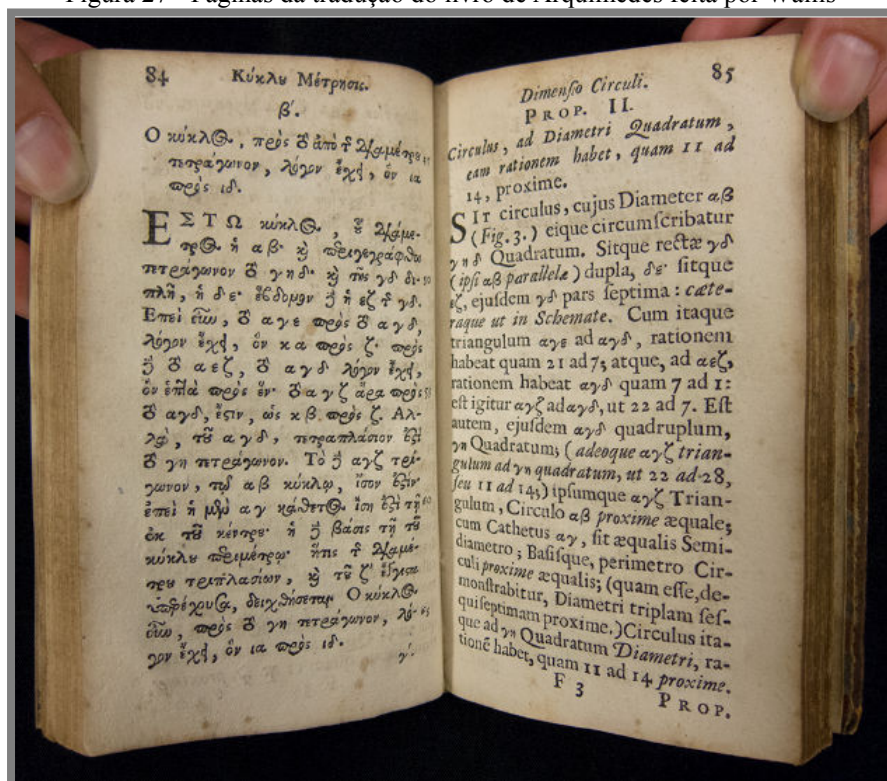 Figura 27 - Páginas da tradução do livro de Arquimedes feita por Wallis
84 Κύκλȣ Μέτρησις.
βʹ.
Ο κύκλ⊙, πρὸς τὸ ἀπὸ τ̃ διαμέτρȣ
τετράγωνον, λόγον ἔχει, ὃν ια
πρὸς ιδ.
ΕΣΤΩ κύκλ⊙, ȣ̃ διάμε-
τρ⊙ ἡ α β· κ̀ περιγεγράφθω
τετράγωνον τὸ γ η δ· κ̀ τῆς γ δ δι- 50
πλῆ, ἡ δ ε· ἕβδομον ἡ ε ζ τ̃ γ δ.
Ἐπεὶ ȣ̓͂ν, τὸ α γ ε πρὸς τὸ α γ δ,
λόγον ἔχει, ὃν κ α πρὸς ζ· πρὸς
τὸ α ε ζ, τὸ α γ δ λόγον ἔχει,
ὃν ἑπτὰ πρὸς ἕν· τὸ α γ ζ ἄρα πρὸς
τὸ α γ δ, ἐστὶν, ὡς κ β πρὸς ζ. Ἀλ-
λὰ, τȣ̃ α γ δ, τετραπλάσιον ἐστὶ
τὸ γ η τετράγωνον. Τὸ α γ ζ τρί-
γωνον, τῷ α β κύκλῳ, ἴσον ἐστὶν·
ἐπεὶ ἡ μὲν α γ κάθετ⊙ ἴση ἐστὶ τῇ 60
ἐκ τȣ̃ κέντρȣ· ἡ βάσις τῇ τȣ̃
κύκλȣ περιμέτρῳ· ἥτις τ̃ διαμέ-
τρȣ τριπλασίων, κ̀ τῷ ζʹ ἔγγιστα
ὑπερέχȣσα, δειχθήσεται. Ὁ κύκλ⊙
ȣ̓͂ν, πρὸς τὸ γ η τετράγωνον, λό- 65
γον ἔχει, ὃν ια πρὸς ιδ.
γʹ.
Dimenſio Circuli. 85
PROP. II.
Circulus, ad Diametri Quadratum,
eam rationem habet, quam 11 ad
14, proxime.
SIT circulus, cujus Diameter αβ
(Fig. 3.) eique circumſcribatur
γηδ Quadratum. Sitque rectæ γδ
(ipſi αβ parallelæ) dupla, δε· ſitque
εζ, ejuſdem γδ pars ſeptima: cæte-
raque ut in Schemate. Cum itaque
triangulum αγε ad αγδ, rationem
habeat quam 21 ad 7; atque, ad αεζ,
rationem habeat αγδ quam 7 ad 1:
eſt igitur αγζ ad αγδ, ut 22 ad 7. Eſt
autem, ejuſdem αγδ quadruplum,
γη Quadratum; (adeoque αγζ trian-
gulum ad γη quadratum, ut 22 ad 28,
ſeu 11 ad 14;) ipſumque αγζ Trian-
gulum, Circulo αβ proxime æquale;
cum Cathetus αγ, ſit æqualis Semi-
diametro; Baſiſque, perimetro Cir-
culi proxime æqualis; (quam eſſe, de-
monſtrabitur, Diametri triplam ſeſ-
quiſeptimam proxime.) Circulus ita-
que ad γη Quadratum Diametri, ra-
tionē habet, quam 11 ad 14 proxime.
F 3 PROP.